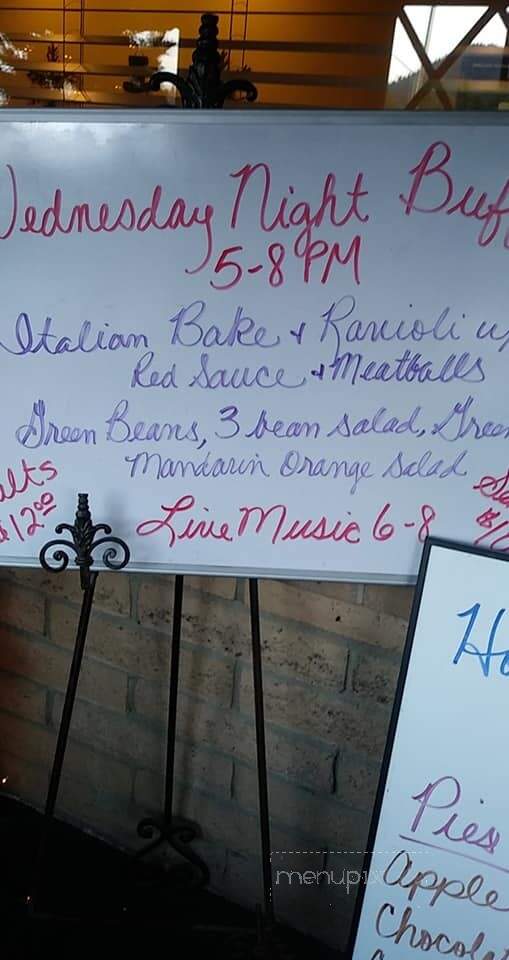 Wednesday Night Buf
5-8 PM
Italian Bake & Ravioli w/
Red Sauce & Meatballs
Green Beans, 3 bean salad, Green
Mandarin Orange Salad
ults
$12.00
Live Music 6-8
Ho
Pies
Apple
Chocola
menupix